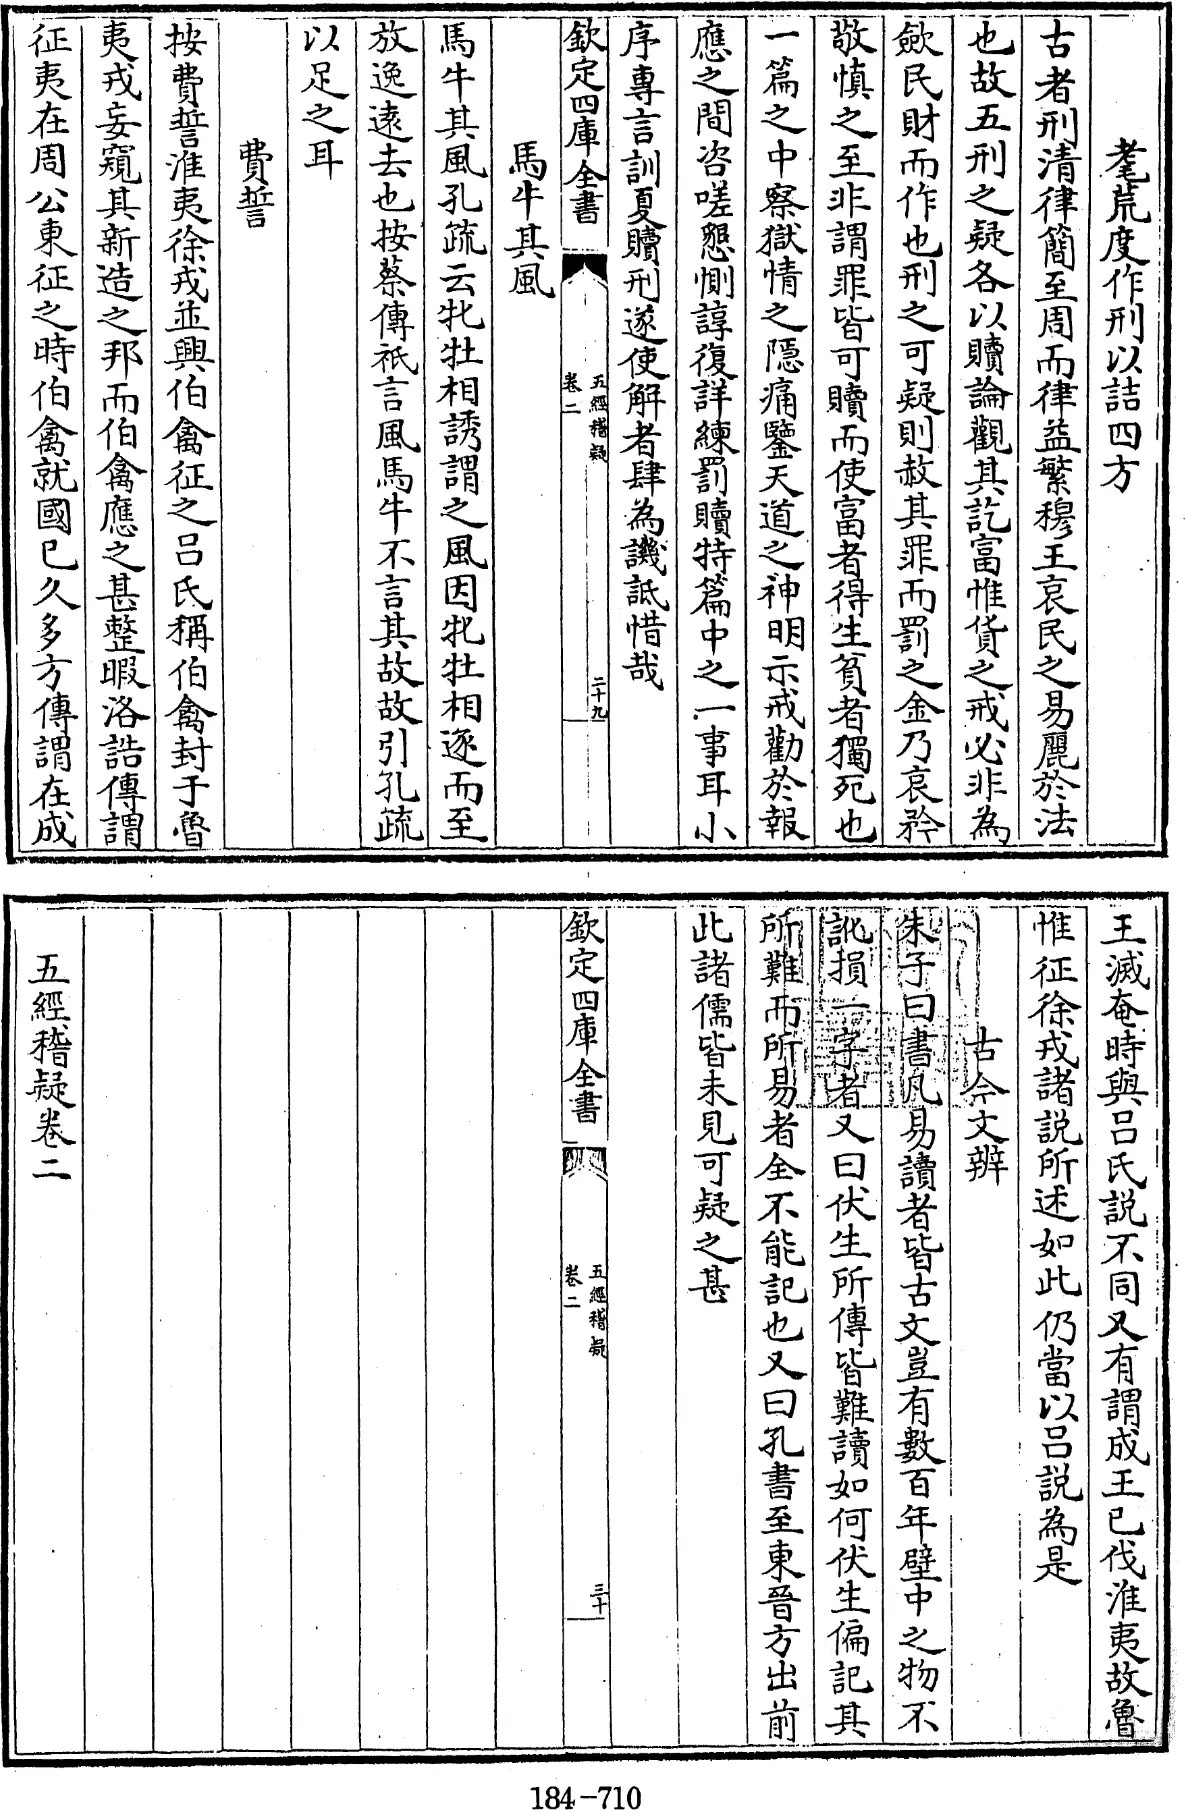 耄荒度作刑以詰四方
古者刑清律簡至周而律益繁穆王哀民之易麗於法
也故五刑之疑各以贖論觀其訖富惟貨之戒必非為
歛民財而作也刑之可疑則赦其罪而罰之金乃哀矜
敬慎之至非謂罪皆可贖而使富者得生貧者獨死也
一篇之中察獄情之隠痛鑒天道之神明示戒勸於報
應之間咨嗟懇惻諄復詳練罰贖特篇中之一事耳小
序專言訓夏贖刑遂使解者肆為譏詆惜哉
欽定四庫全書
五經稽疑
卷二
二十九
馬牛其風
馬牛其風孔疏云牝牡相誘謂之風因牝牡相逐而至
放逸逺去也按蔡傳祇言風馬牛不言其故故引孔疏
以足之耳
費誓
按費誓淮夷徐戎並興伯禽征之呂氏稱伯禽封于魯
夷戎妄窺其新造之邦而伯禽應之甚整暇洛誥傳謂
征夷在周公東征之時伯禽就國已久多方傳謂在成
王滅奄時與呂氏説不同又有謂成王已伐淮夷故魯
惟征徐戎諸説所述如此仍當以呂説為是
古今文辨
朱子曰書凡易讀者皆古文豈有數百年壁中之物不
訛損一字者又曰伏生所傳皆難讀如何伏生偏記其
所難而所易者全不能記也又曰孔書至東晉方出前
此諸儒皆未見可疑之甚
欽定四庫全書
五經稽疑
卷二
三十
五經稽疑卷二
184-710